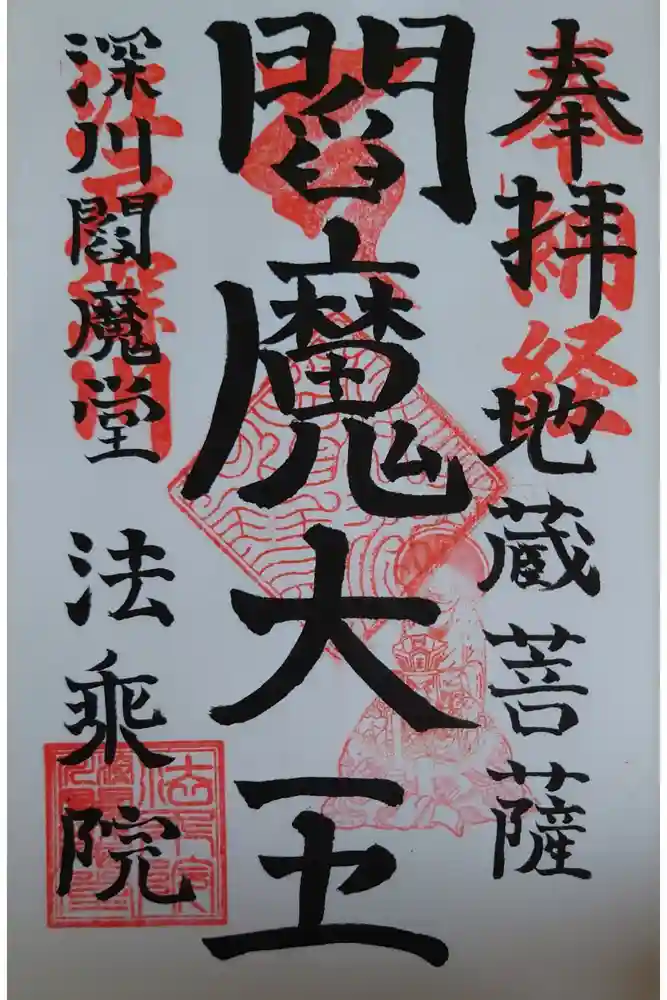 奉拝
地蔵菩薩
閻魔大王
深川閻魔堂
法乗院
納経